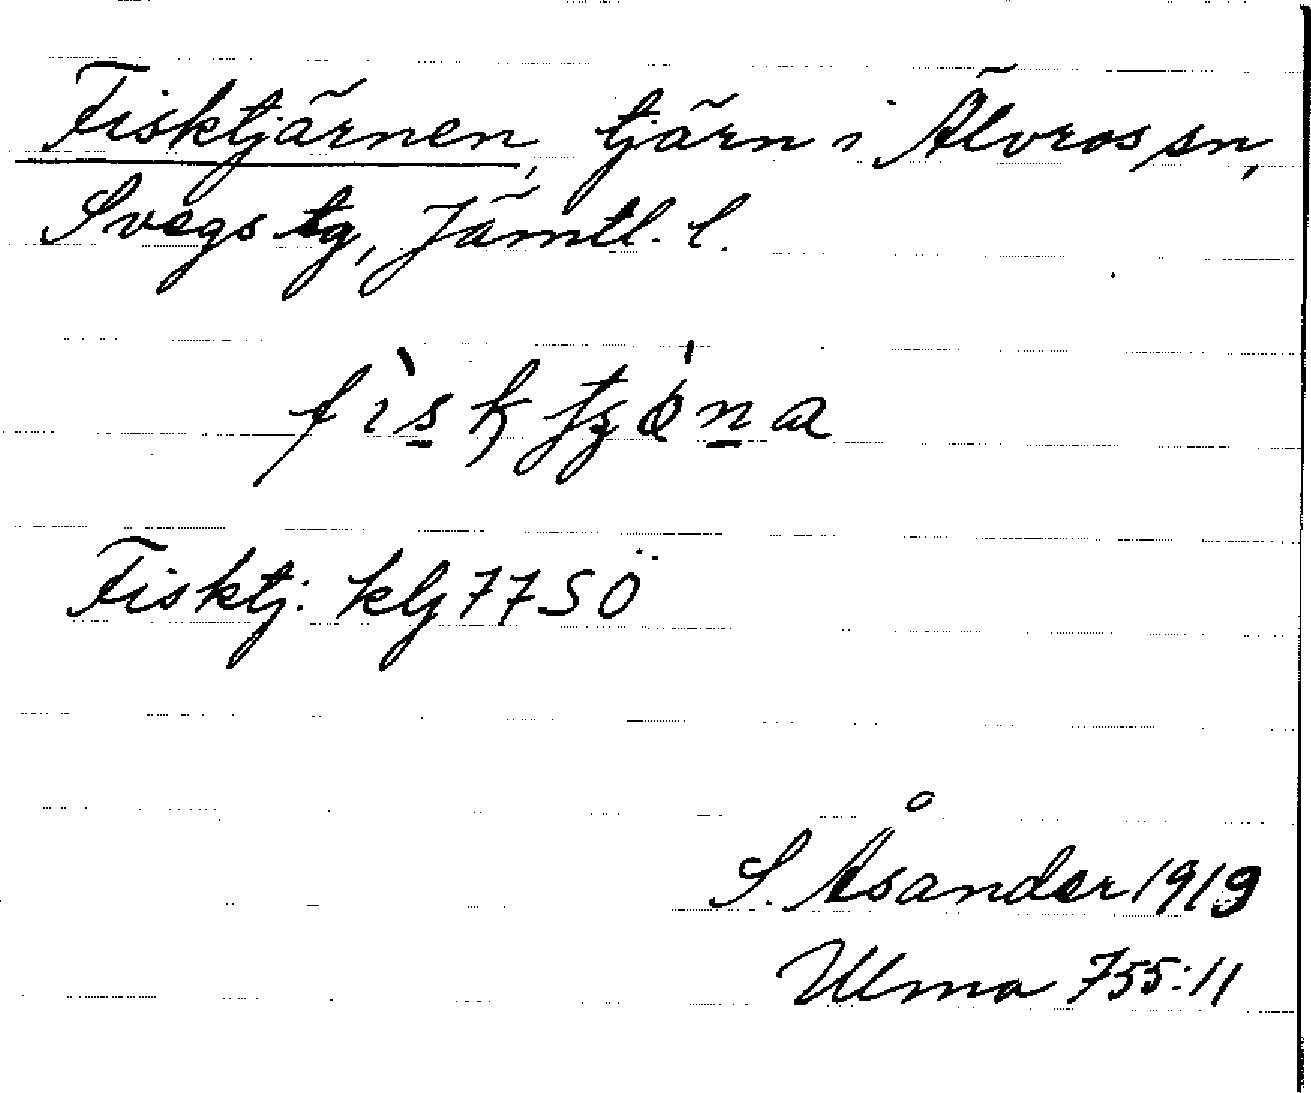 Fisktjärnen, tjärn i Älvros sn,
Svegs tg, Jämtl. l.
Fisktj: klj 77 SÖ
S. Åsander 1919
Ulma 755:11